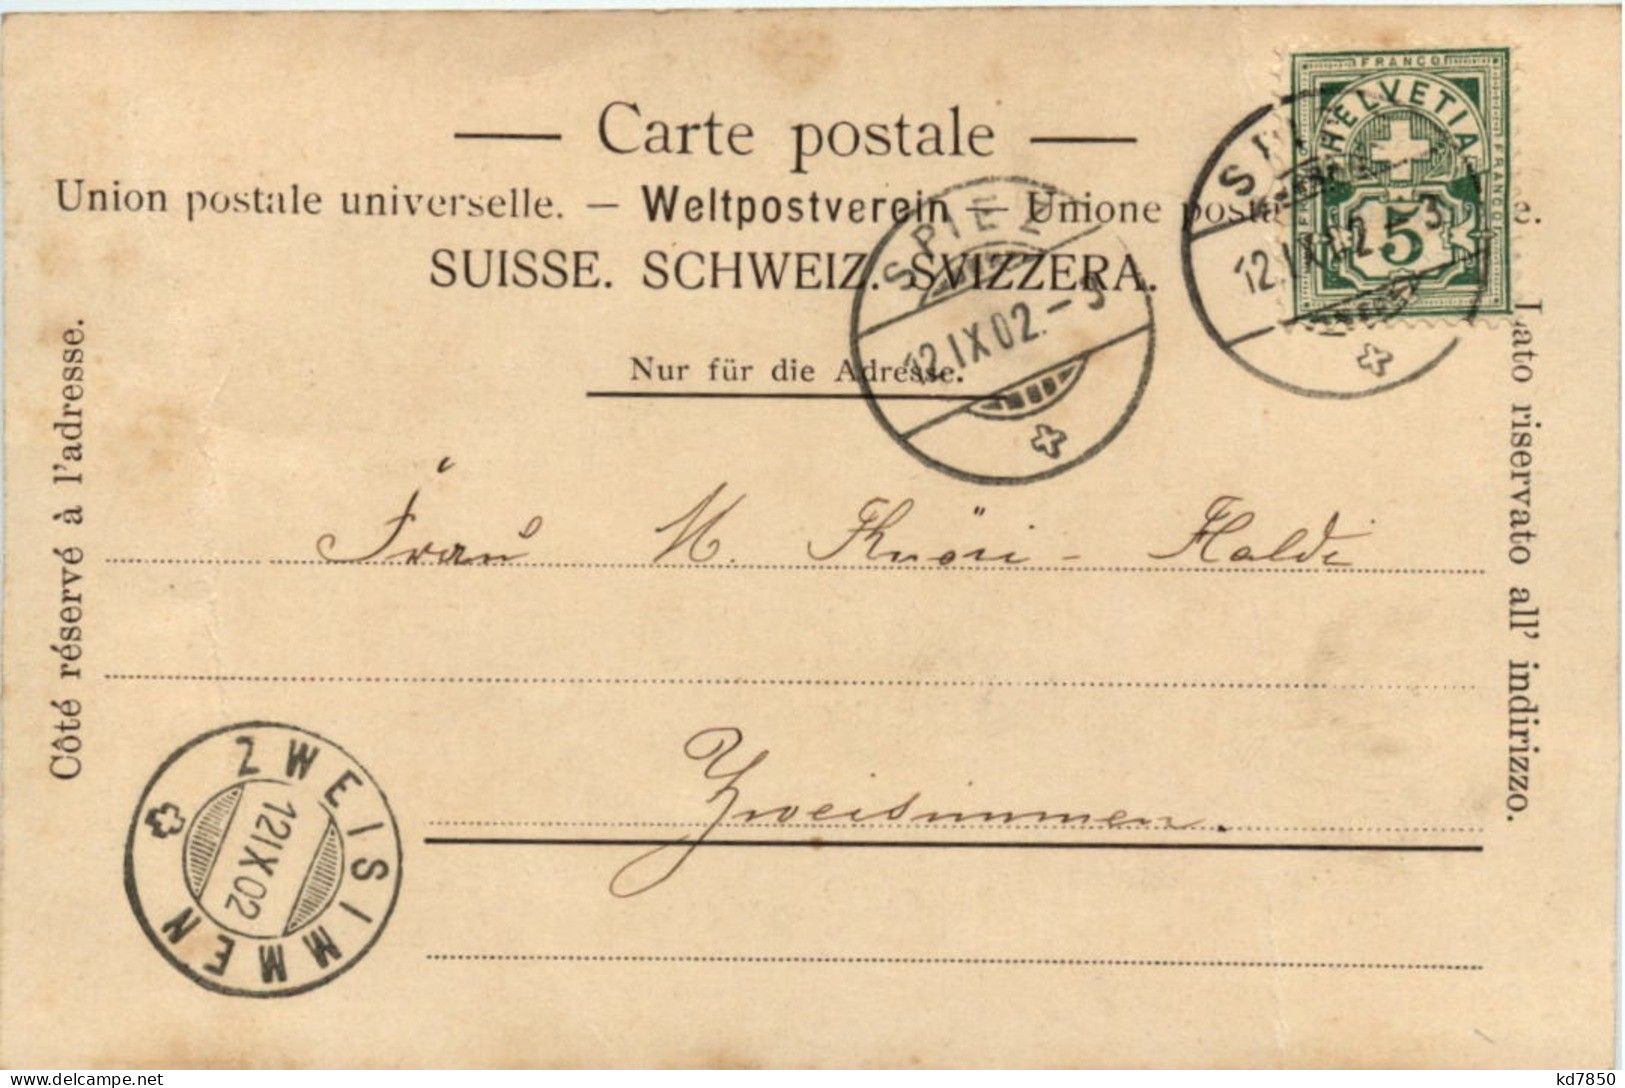 FRANCO
HELVETIA
FRANCO
5
— Carte postale —
Union postale universelle. — Weltpostverein — Unione
SUISSE. SCHWEIZ. SVIZZERA.
Nur für die Adresse.
SPIEZ
12.IX.02.-3
12.IX.02. 3
Côté réservé à l'adresse.
Lato riservato all' indirizzo.
Frau M. Knöri - Haldi
Zweisimmen.
ZWEISIMMEN
12 IX 02
kd7850